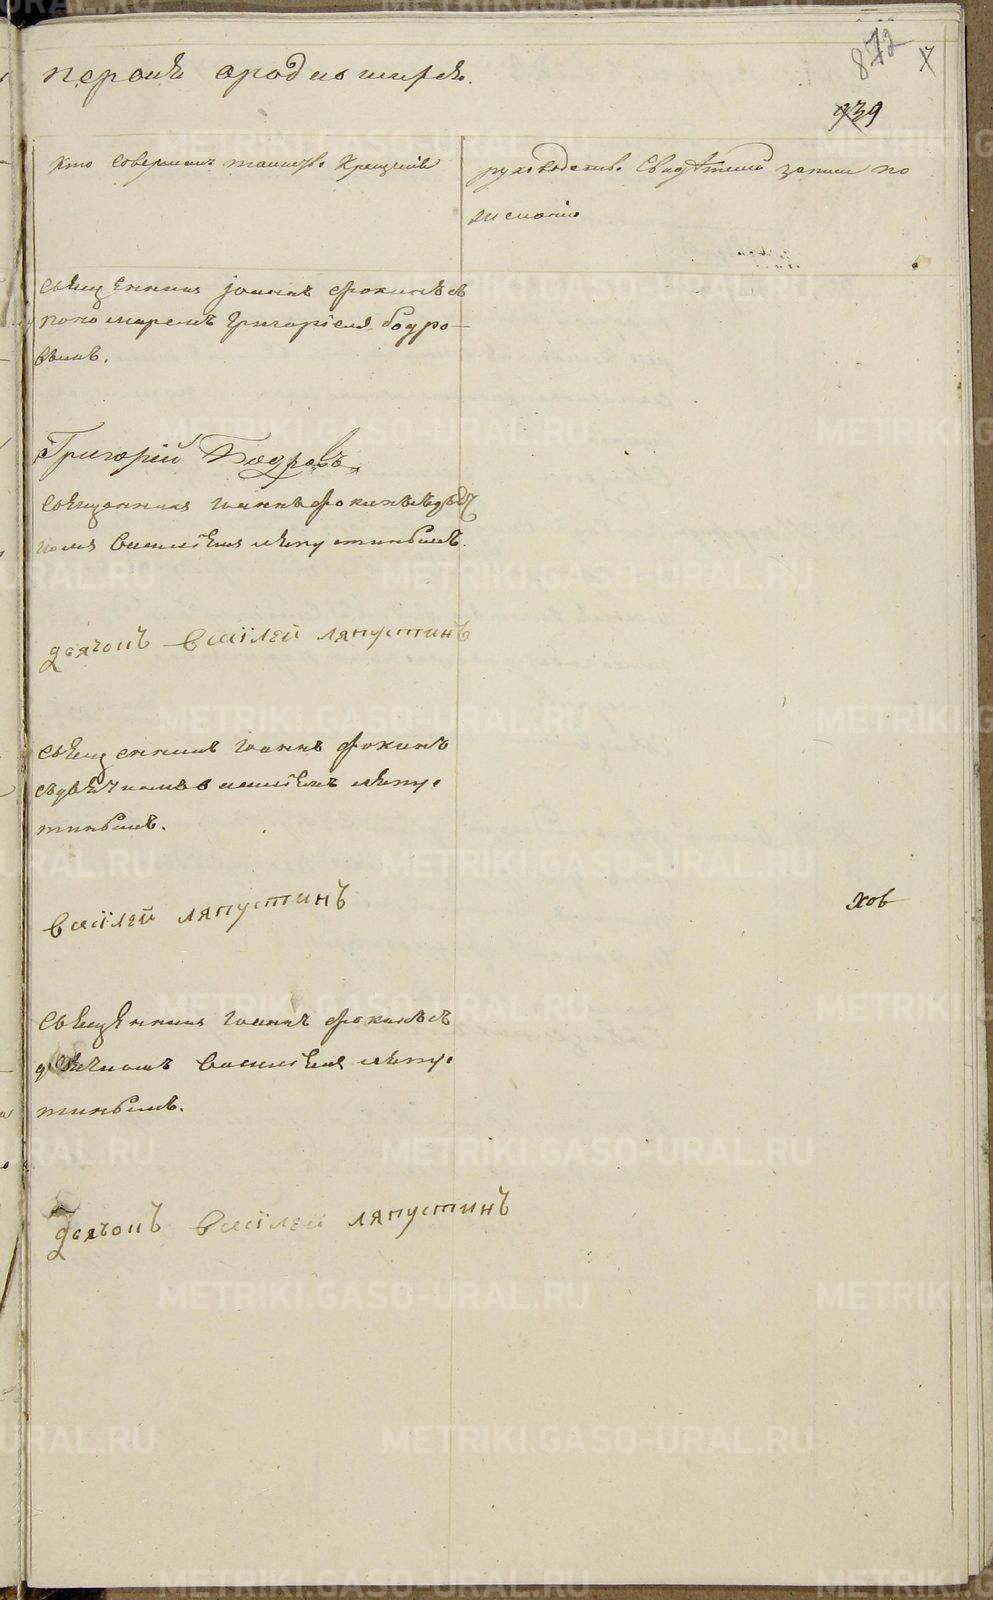 872
Перьвая о родившихся.
939
Кто совершалъ таинство крещенія
рукоприкладство свидѣтелей записи по
желанію
Священникъ Іоаннъ Фокинъ съ
пономаремъ Григоріемъ Бодро-
вымъ.
Григорій Бодровъ
Священникъ Іоаннъ Фокинъ съ дьяч
комъ Василіемъ Ляпустинымъ.
дьячокъ Василей Ляпустинъ
Священникъ Іоаннъ Фокинъ
съ дьячкомъ Василіемъ Ляпус
тинымъ.
Василей Ляпустинъ
хов
Священникъ Іоаннъ Фокинъ съ
дьячкомъ Василіемъ Ляпус
тинымъ.
дьячокъ Василей Ляпустинъ
METRIKI.GASO-URAL.RU